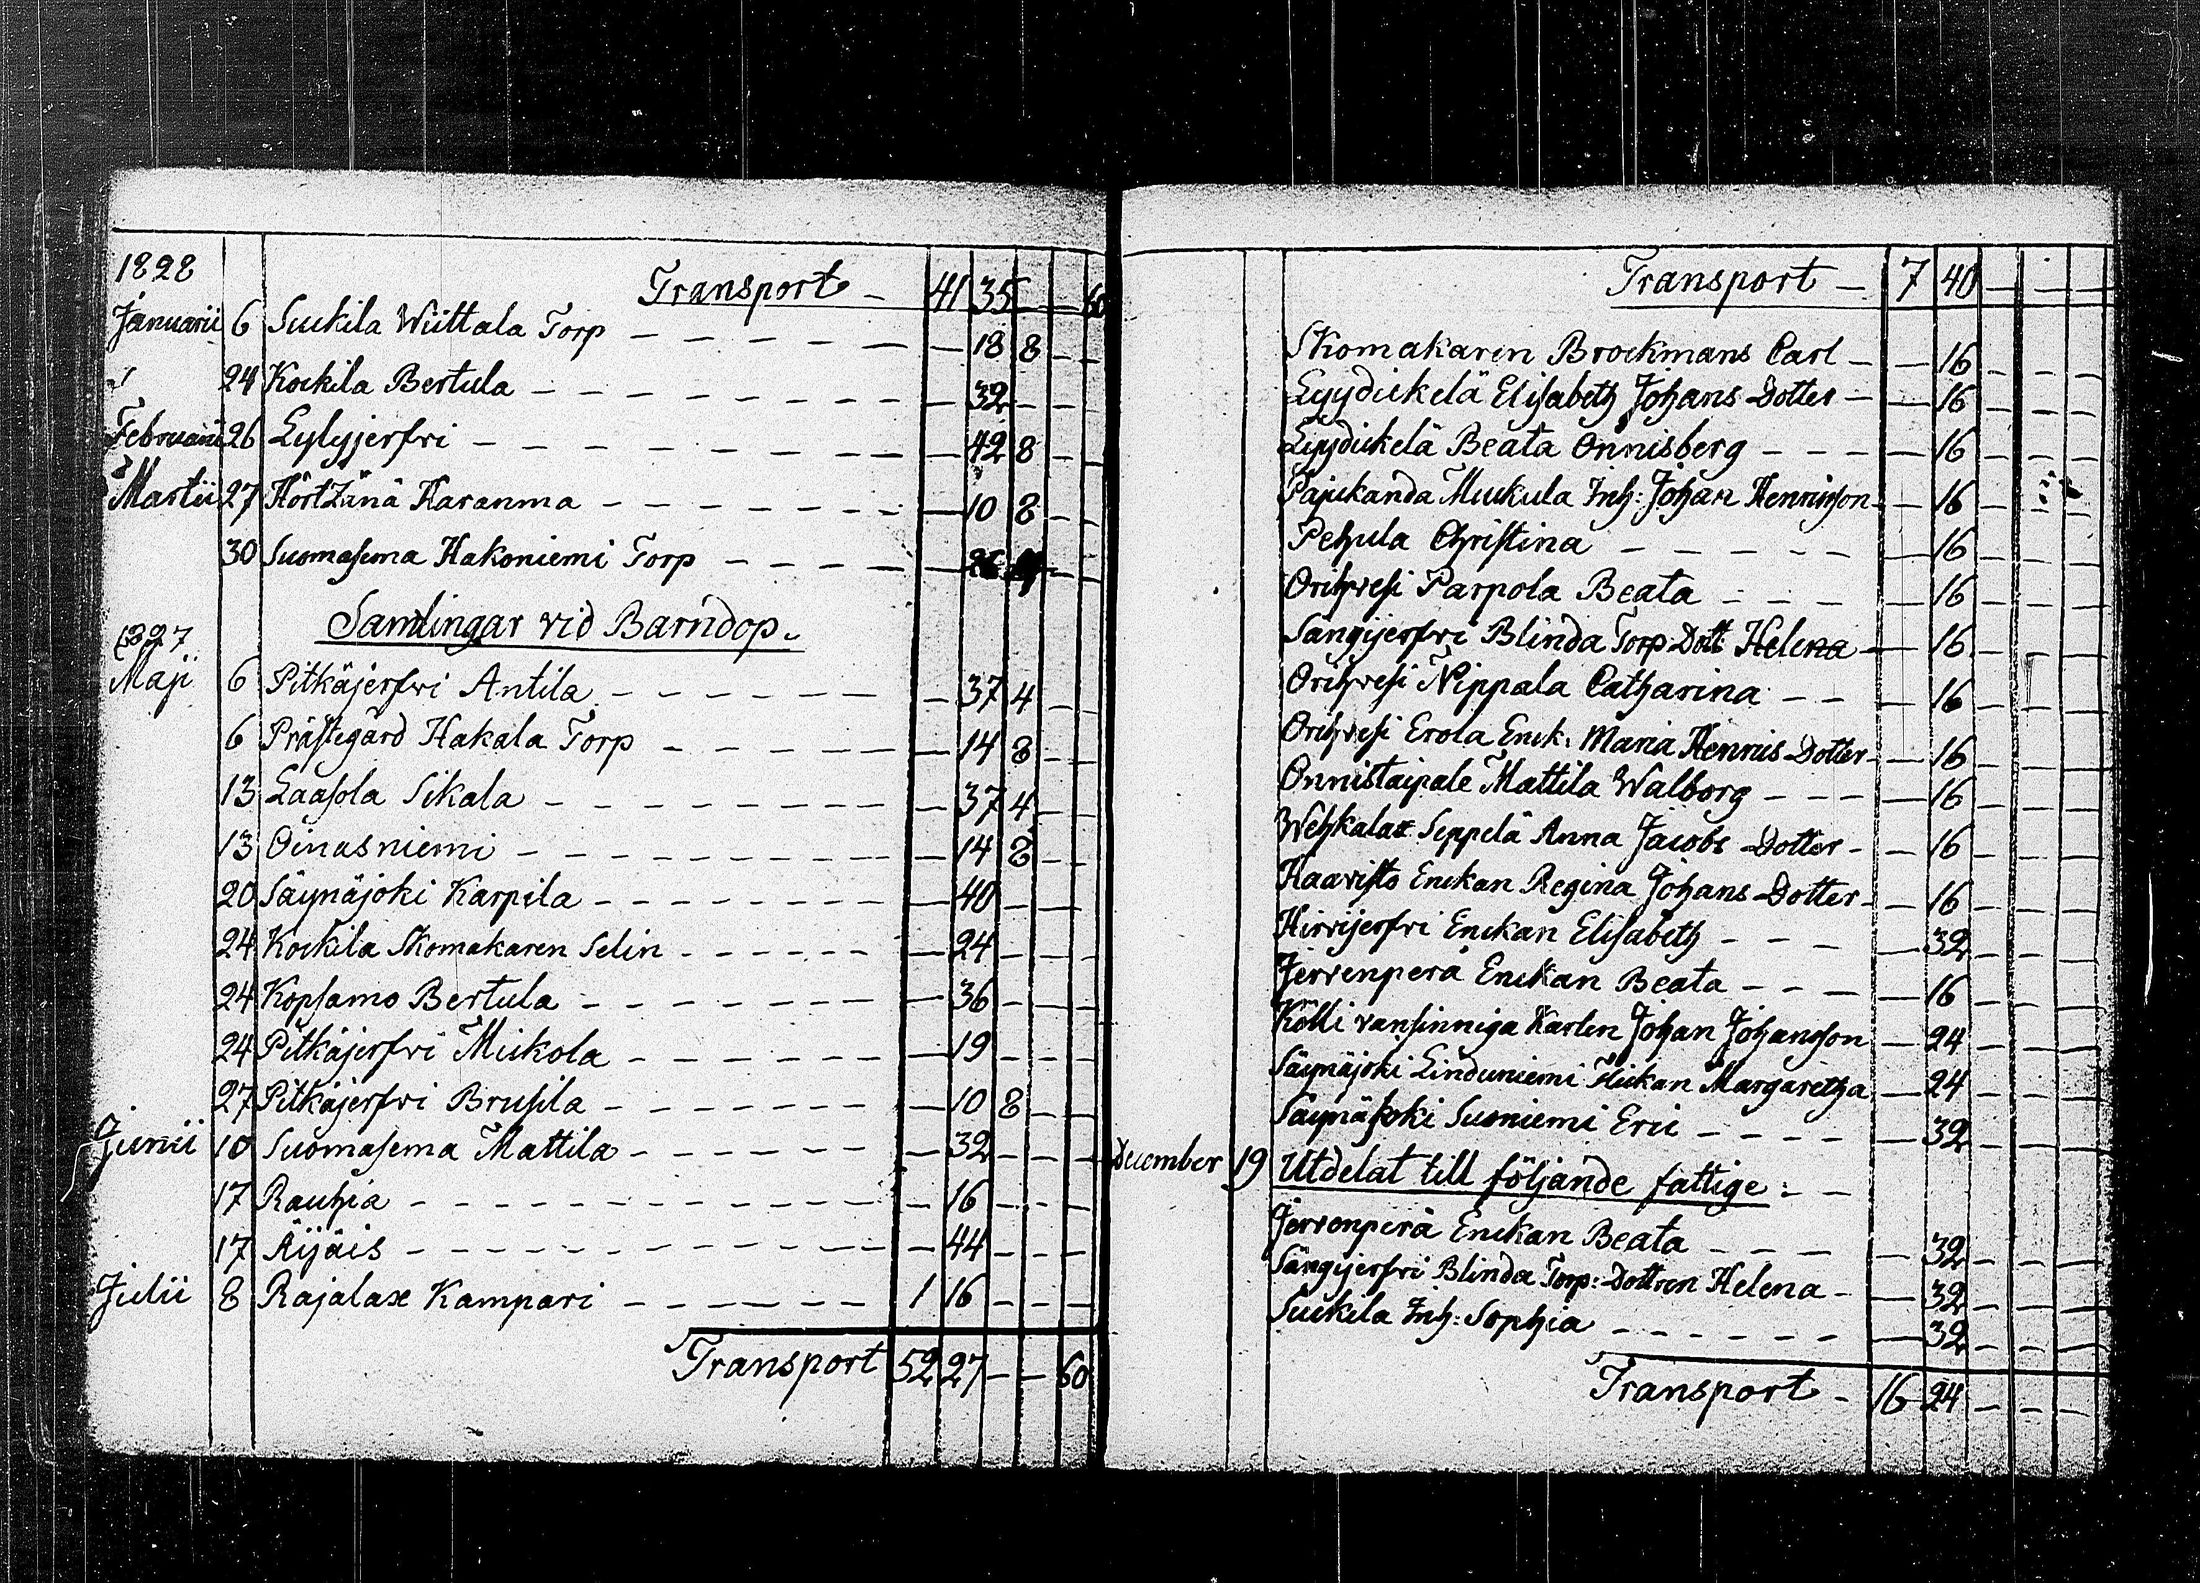 1828
Transport - 41 35 - - 60
Januarii 6 Suckila Wiittala Torp - - - - - 18 8 - -
" 24 Kockila Bertula - - - - - 32 - - -
Februarii 26 Lylyjerfvi - - - - - 42 8 - -
Martii 27 Hörtzänä Haranma - - - - - 10 8 - -
30 Suomasema Hakoniemi Torp - - - - -
Samlingar vid Barndop.
1827
Maji 6 Pitkäjerfvi Antila - - - - - 37 4 - -
6 Prästegård Hakala Torp - - - - - 14 8 - -
13 Laasola Sikala - - - - - 37 4 - -
13 Oinasniemi - - - - - 14 8 - -
20 Säynäjoki Karpila - - - - - 40 - - -
24 Kockila Skomakaren Selin - - - - - 24 - - -
24 Kopsamo Bertula - - - - - 36 - - -
24 Pitkäjerfvi Mickola - - - - - 19 - - -
27 Pitkäjerfvi Brusila - - - - - 10 8 - -
Junii 10 Suomasema Mattila - - - - - 32 - - -
17 Rauhia - - - - - 16 - - -
17 Äijäis - - - - - 44 - - -
Julii 8 Rajalax Kampari - - - - - 1 16 - - -
Transport 52 27 - - 60
Transport - 7 40 - - -
Skomakaren Brockmans Carl - - 16 - - -
Lyydickelä Elisabeth Johans Dotter - - 16 - - -
Lyydickelä Beata Onnisberg - - - 16 - - -
Pajukanda Muckula Inh: Johan Henricsson - 16 - - -
Pehula Christina - - - - - 16 - - -
Orihvesi Parpola Beata - - - - 16 - - -
Sängijerfvi Blinda Torp. Dott: Helena - 16 - - -
Orihvesi Nippala Catharina - - - 16 - - -
Orihvesi Erola Enck: Maria Henrics Dotter - 16 - - -
Onnistaipale Mattila Walborg - - - 16 - - -
Wehkalax Seppelä Anna Jacobs Dotter - - 16 - - -
Haavisto Enckan Regina Johans Dotter - - 16 - - -
Hirvijerfvi Enckan Elisabeth - - - - 32 - - -
Jervenperä Enckan Beata - - - - 16 - - -
Kölli vansinniga Karlen Johan Johansson - 24 - - -
Säynäjoki Linduniemi Flickan Margaretha - 24 - - -
Säynäjoki Suoniemi Eric - - - - - 32 - - -
December 19 Utdelat till följande fattige: - -
Jervenperä Enckan Beata - - - - 32 - - -
Sängijerfvi Blinda Torp: Dottren Helena - - 32 - - -
Suckila Inh: Sophia - - - - - - 32 - - -
Transport - 16 24 - - -